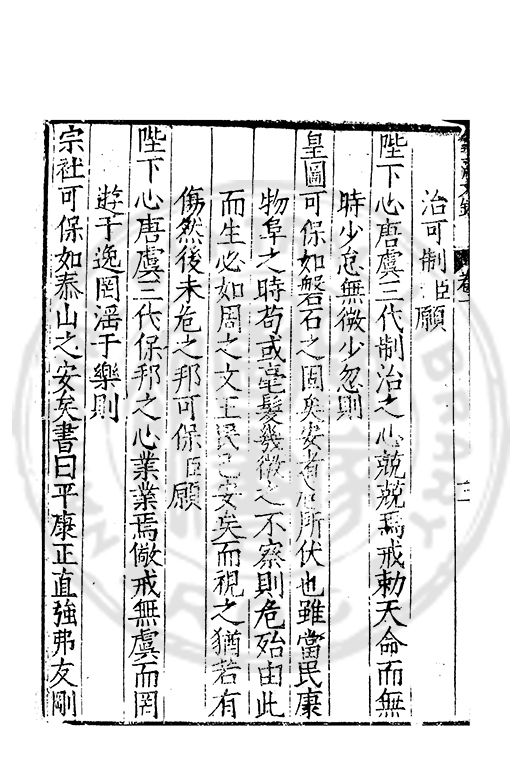 治可制臣願
陛下心唐虞三代制治之心兢兢焉戒勅天命而無
時少怠無微少忽則
皇圖可保如磐石之固矣安者危所伏也雖當民康
物阜之時苟或毫髮幾微之不察則危殆由此
而生必如周之文王民已安矣而視之猶若有
傷然後未危之邦可保臣願
陛下心唐虞三代保邦之心業業焉儆戒無虞而罔
遊于逸罔淫于樂則
宗社可保如泰山之安矣書曰平康正直強弗友剛